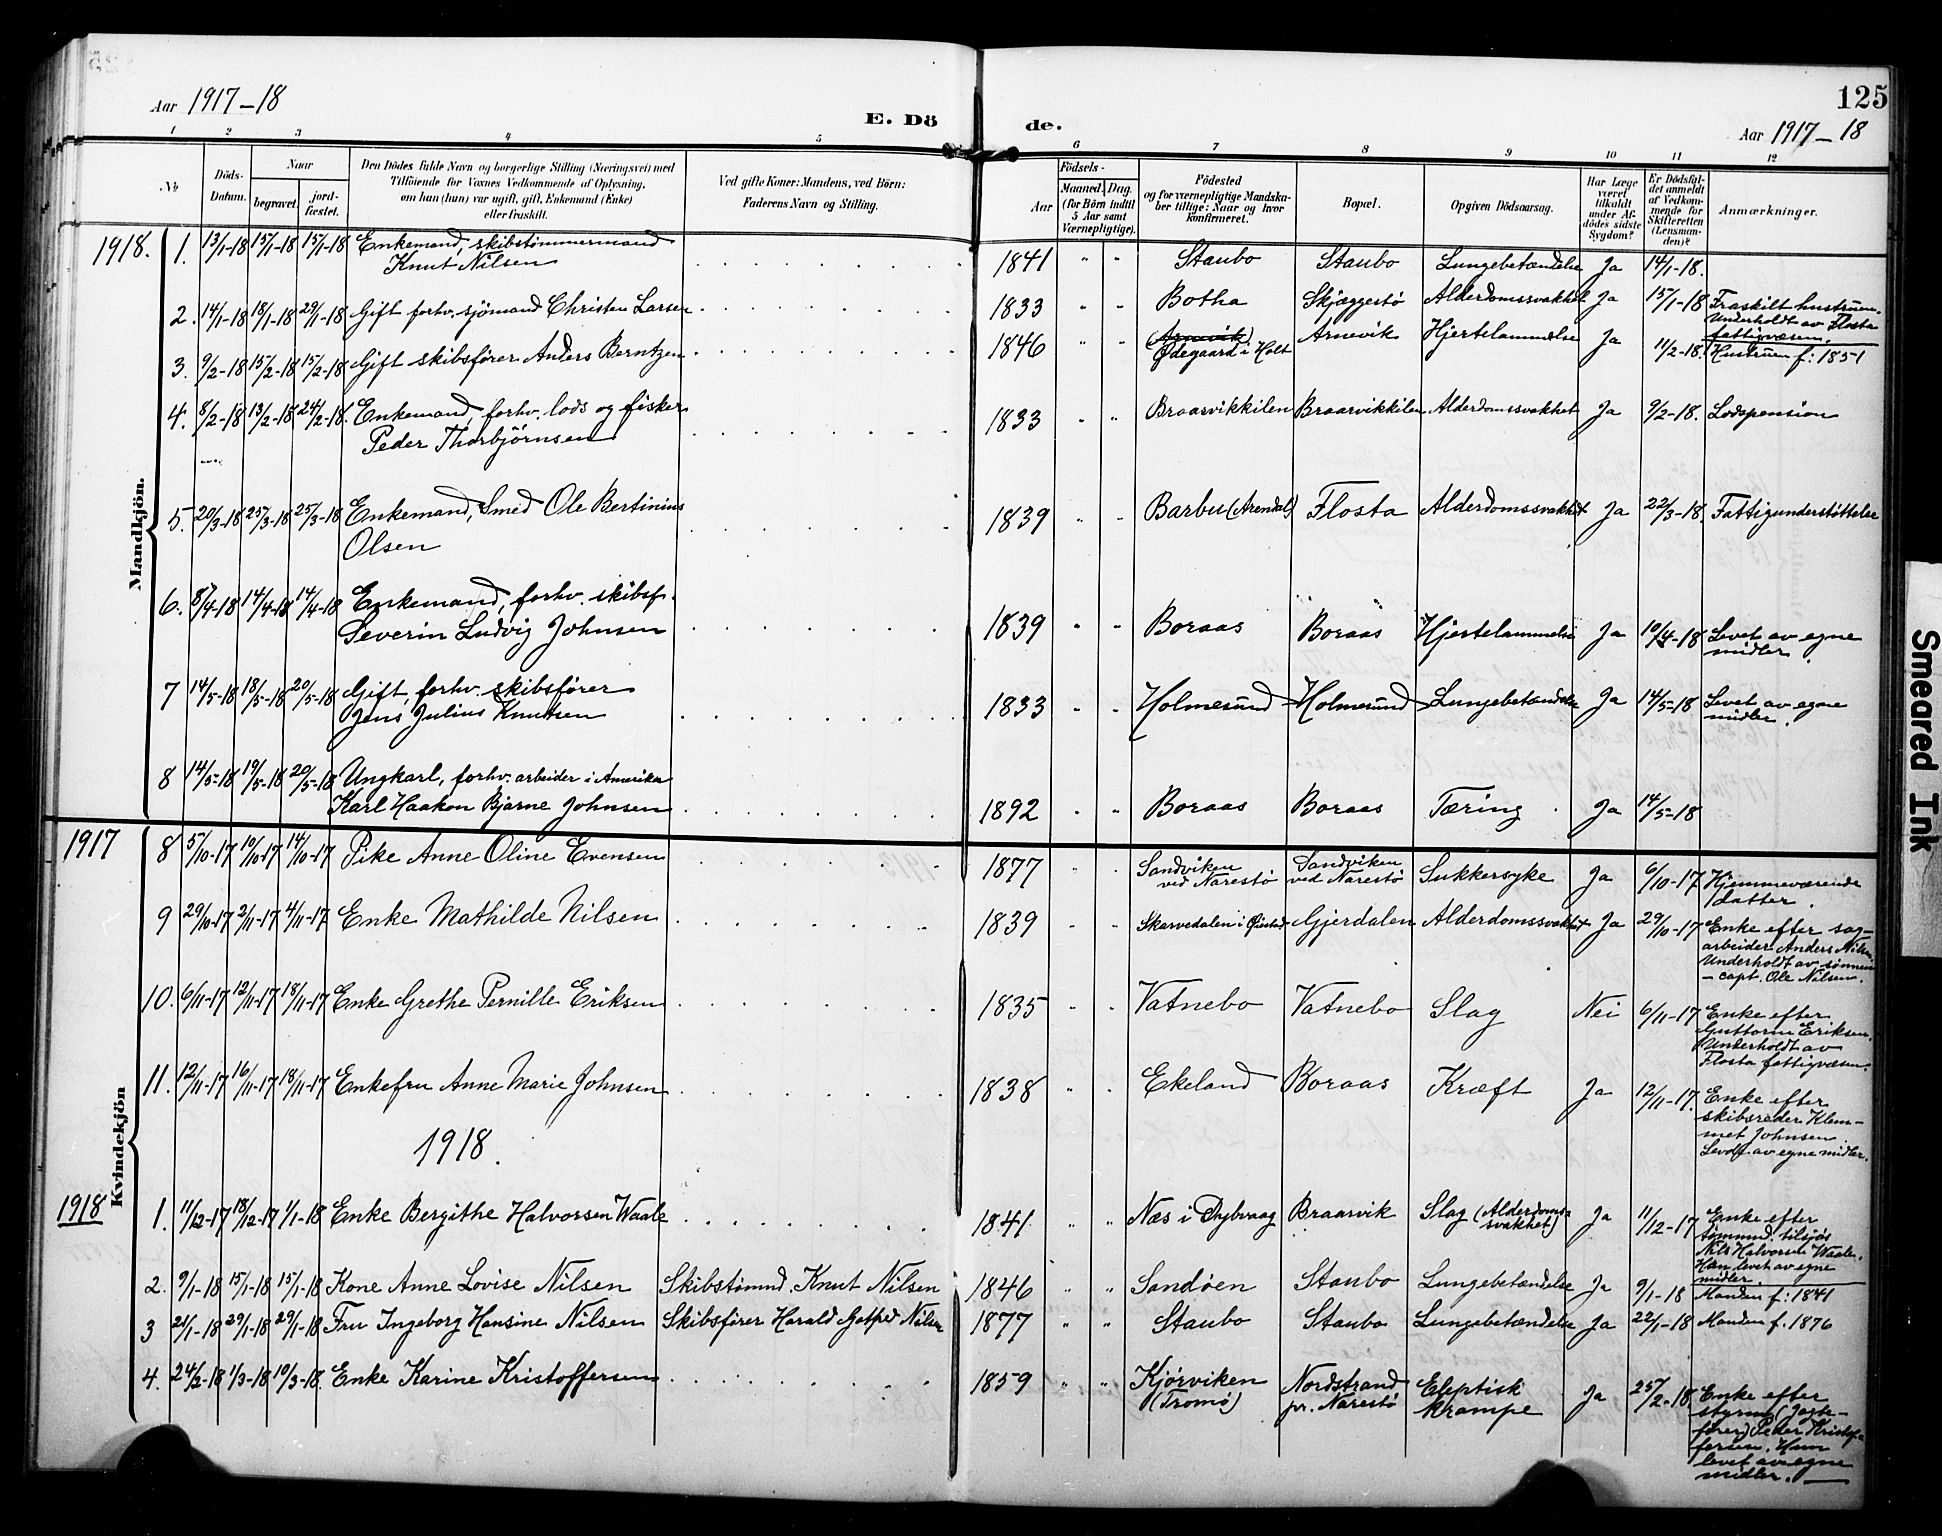 Aar 1917-18
E. Dö
de.
125
Aar 1917-18
1 2 3 4 5 6 7 8 9 10 11 12
No
Döds-Datum.
Naar
begravet. jord-fæstet.
Den Dödes fulde Navn og borgerlige Stilling (Næringsvei) med
Tilföiende for Voxnes Vedkommende af Oplysning,
om han (hun) var ugift, gift, Enkemand (Enke)
eller fraskilt.
Ved gifte Koner: Mandens, ved Börn:
Faderens Navn og Stilling.
Födsels-
Aar Maaned. Dag.
(for Börn indtil 5 Aar samt Værnepligtige).
Födested
og for værnepligtige Mandska-
ber tillige: Naar og hvor
Konfirmeret.
Bopæl.
Opgiven Dödsaarsag.
Har Læge været tilkaldt under Af-dödes sidste Sygdom?
Er Dödsfal-det anmeldt af Vedkom-mende for Skifteretten (Lensman-den)?
Anmærkninger.
Mandkjön.
1918. 1. 13/1-18 15/1-18 15/1-18 Enkemand, skibstømmermand
Knut Nilsen 1841 " " Staubo Staubo Lungebetændelse Ja 14/1-18.
2. 14/1-18 18/1-18 29/1-18 Gift forhv. sjömand Christen Larsen 1833 " " Botha Skjæggestö Alderdomssvakhet Ja 15/1-18 Fraskilt hustruen.
Underholdt av Flosta
fattigvæsen.
3. 9/2-18 15/2-18 15/2-18 Gift skibsförer Anders Berntzen 1846 " " (Arnevik) Ødegaard i Holt Arnevik Hjertelammelse Ja 11/2-18. Hustruen f: 1851
4. 8/2-18 13/2-18 24/2-18. Enkemand, forhv. lods og fisker
Peder Thorbjörnsen 1833 " " Braasvikkilen Braarvikkilen Alderdomssvakhet Ja 9/2-18. Lodspension
5. 20/3-18 25/3-18 25/3-18 Enkemand, Smed Ole Bertinius
Olsen 1839 " " Barbu (Arendal) Flosta Alderdomssvakhet Ja 22/3-18. Fattigunderstöttelse
6. 8/4-18 14/4-18 14/4-18 Enkemand, forhv. skibsf.
Severin Ludvig Johnsen 1839 " " Boraas Boraas Hjertelammelse Ja 10/4-18 Levet av egne
midler.
7 14/5-18 18/5-18 20/5-18 Gift, forhv. skibsförer
Jens Julius Knutsen 1833 " " Holmesund Holmesund Lungebetændelse Ja 14/5-18 Levet av egne
midler.
8 14/5-18 19/5-18 20/5-18 Ungkarl, forhv. arbeider i Amerika
Karl Haakon Bjarne Johnsen 1892 " " Boraas Boraas Tæring Ja 14/5-18
Kvindekjön
1917 8 5/10-17 10/10-17 14/10-17 Pike Anne Oline Evensen 1877 " " Sandviken
ved Narestö Sandviken
ved Narestö Sukkersyke Ja 6/10-17 Hjemmeværende
datter.
9 29/10-17 2/11-17 4/11-17 Enke Mathilde Nilsen 1839 " " Skarvedalen i Øiestad Gjerdalen Alderdomssvakhet Ja 29/10-17 Enke efter sag-
arbeider Anders Nilsen.
Underholdt av sönnen
- capt. Ole Nilsen.
10. 6/11-17 12/11-17 18/11-17 Enke Grethe Pernille Eriksen 1835 " " Vatnebo Vatnebo Slag Nei 6/11-17 Enke efter
Guttorm Eriksen.
Underholdt av
Flosta fattigvæsen.
11. 12/11-17 16/11-17 18/11-17 Enkefru Anne Marie Johnsen 1838 " " Ekeland Boraas Kræft Ja 12/11-17. Enke efter
skibsreder Klem-
met Johnsen.
Levde av egne midler.
1918.
1918 1. 11/12-17 18/12-17 1/1-18 Enke Bergithe Halvorsen Waale 1841 " " Næs i Dybvaag Braarvik Slag (Alderdoms-
svakhet) Ja 11/12-17 Enke efter
tømmd. tilsjøs
Nils Halvorsen Waale.
Han levet av egne
midler.
2. 9/1-18 15/1-18 15/1-18 Kone Anne Lovise Nilsen Skibstømmd. Knut Nilsen 1846 " " Sandöen Staubo Lungebetændelse Ja 9/1-18 Manden f: 1841
3 21/1-18 29/1-18 29/1-18 Fru Ingeborg Hansine Nilsen Skibsförer Harald Gotfred Nilsen 1877 " " Staubo Staubo Lungebetændelse Ja 22/1-18 Manden f. 1876
4. 24/2-18 1/3-18 10/3-18. Enke Karine Kristoffersen 1859 " " Kjörviken
(Tromö) Nordstrand
pr. Narestö Eleptisk
krampe Ja 25/2-18. Enke efter
styrm. (Jagte-
förer) Peder Kristof-
fersen. Hun
levet av egne
midler.
Smeared Ink